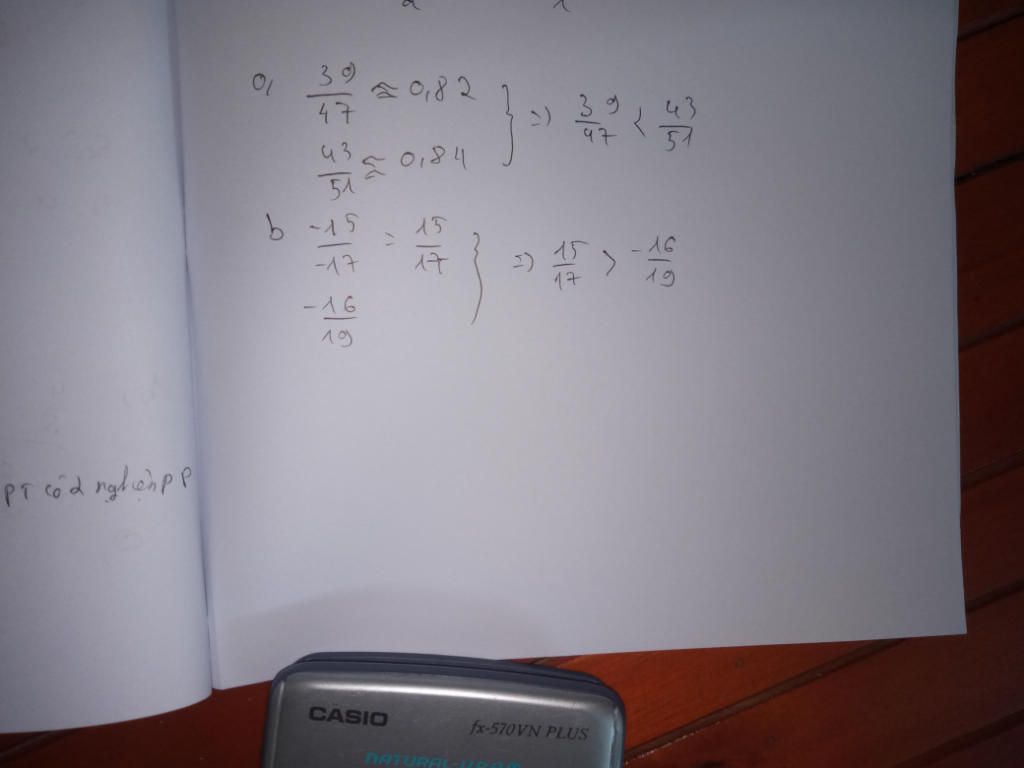 a, 39/47 ≈ 0,82 } => 39/47 < 43/51
43/51 ≈ 0,84
b -15/-17 = 15/17 } => 15/17 > -16/19
-16/19
PT có 2 nghiệm PP
CASIO
fx-570VN PLUS
NATURAL-V.P.A.M.